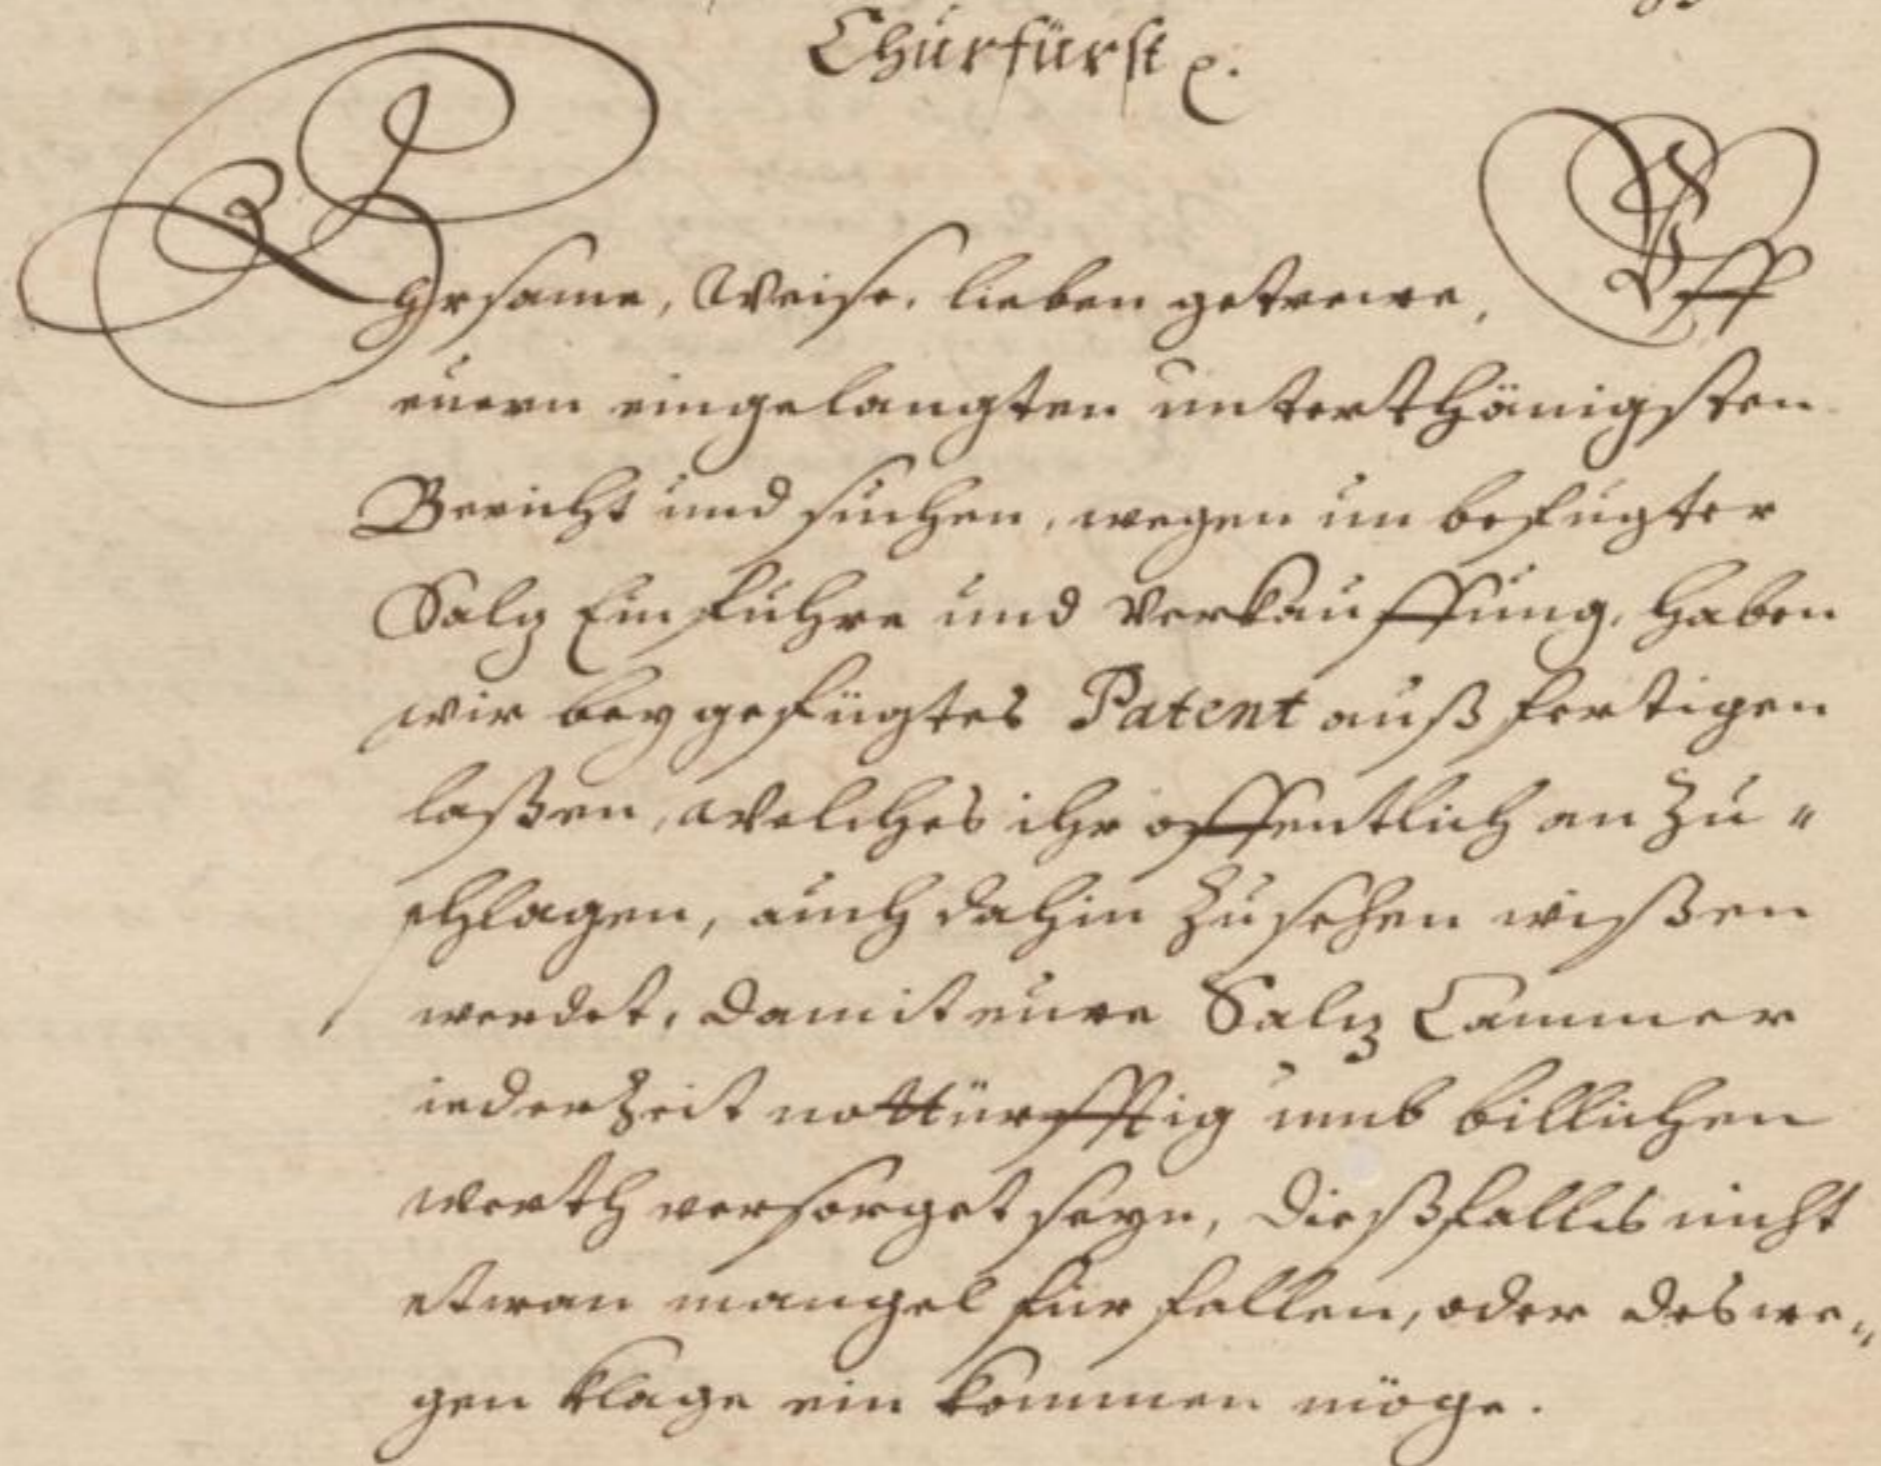 Churfürst ꝛc.
Ehrsame, Weise, lieben getrewe, Uff
euern eingelangten unterthänigsten
Bericht und suchen, wegen un befugter
Saltz Einfuhre und Verkauffung, haben
wir beygefügtes Patent außfertigen
laßen, welches ihr öffentlich an zu"
schlagen, auch dahin zu sehen wißen
werdet, damit eure Saltz Cammer
iederzeit notturfftig umb billichen
werth versorget seyn, dießfalls nicht
etwan mangel fürfallen, oder deswe"
gen klage ein kommen möge.